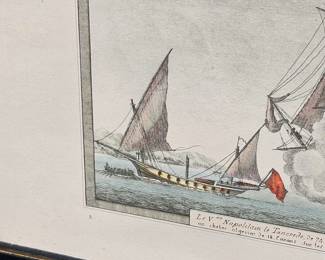 Le V.au Napolitain le Tancrede, de 74
un chebec algerien de 18 Canons Sur les